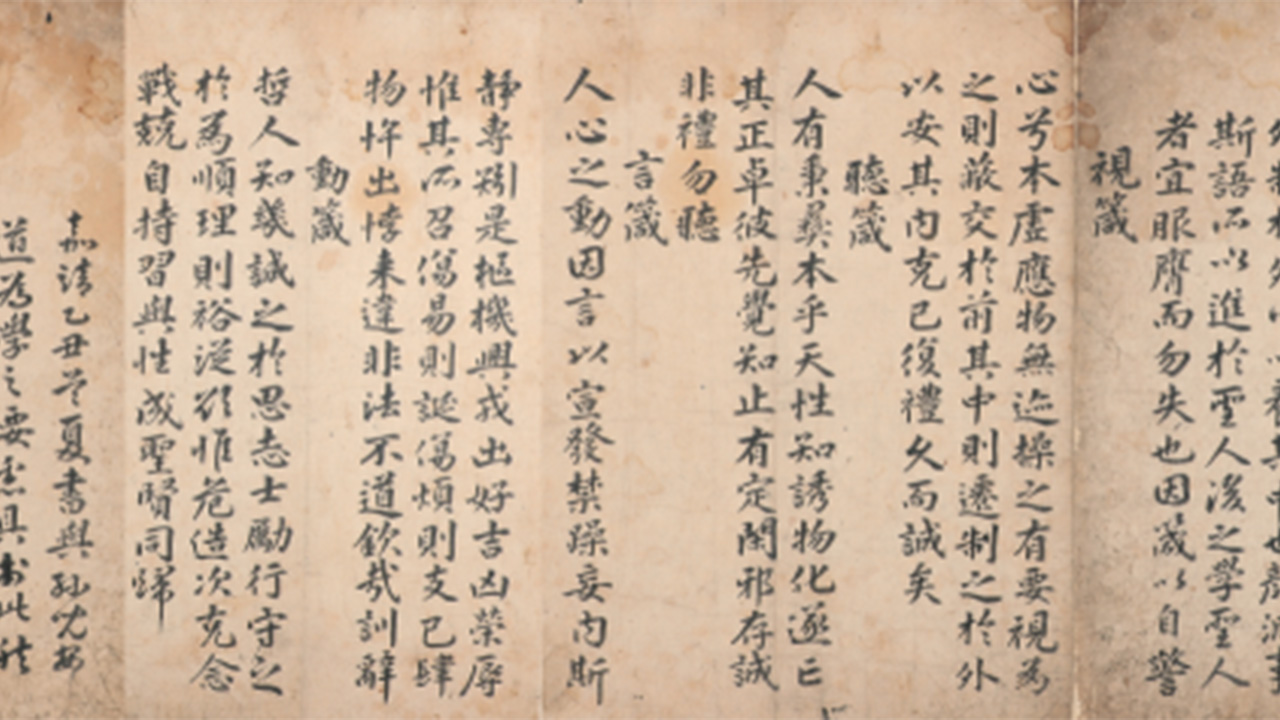 斯語所以進於聖人後之學聖人
者宜服膺而勿失也因箴以自警
視箴
心兮本虛應物無迹操之有要視為
之則蔽交於前其中則遷制之於外
以安其內克已復禮久而誠矣
聽箴
人有秉彛本乎天性知誘物化遂亡
其正卓彼先覺知止有定閑邪存誠
非禮勿聽
言箴
人心之動因言以宣發禁躁妄內斯
靜專矧是樞機興戎出好吉凶榮辱
惟其所召傷易則誕傷煩則支已肆
物忤出悖来違非法不道欽哉訓辭
動箴
哲人知幾誠之於思志士勵行守之
於為順理則裕從欲惟危造次克念
戰兢自持習與性成聖賢同歸
嘉靖乙丑夏書與孫安
道為學之要具於此